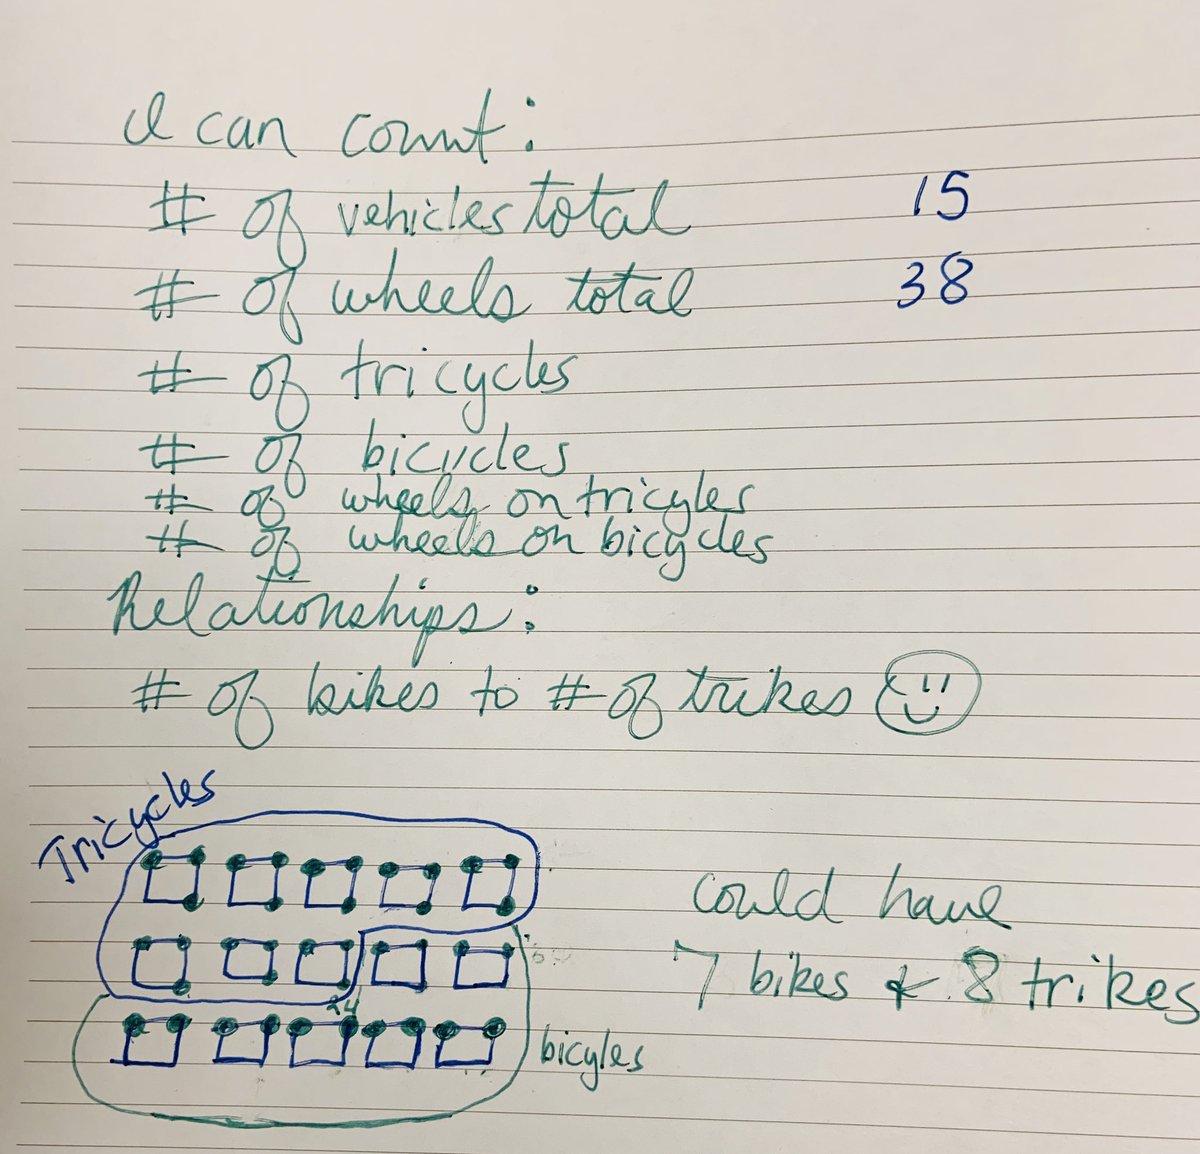 I can count:
# of vehicles total 15
# of wheels total 38
# of tricycles
# of bicycles
# of wheels on tricyles
# of wheels on bicycles
Relationships:
# of bikes to # of trikes
Tricycles
24
bicyles
could have
7 bikes & 8 trikes